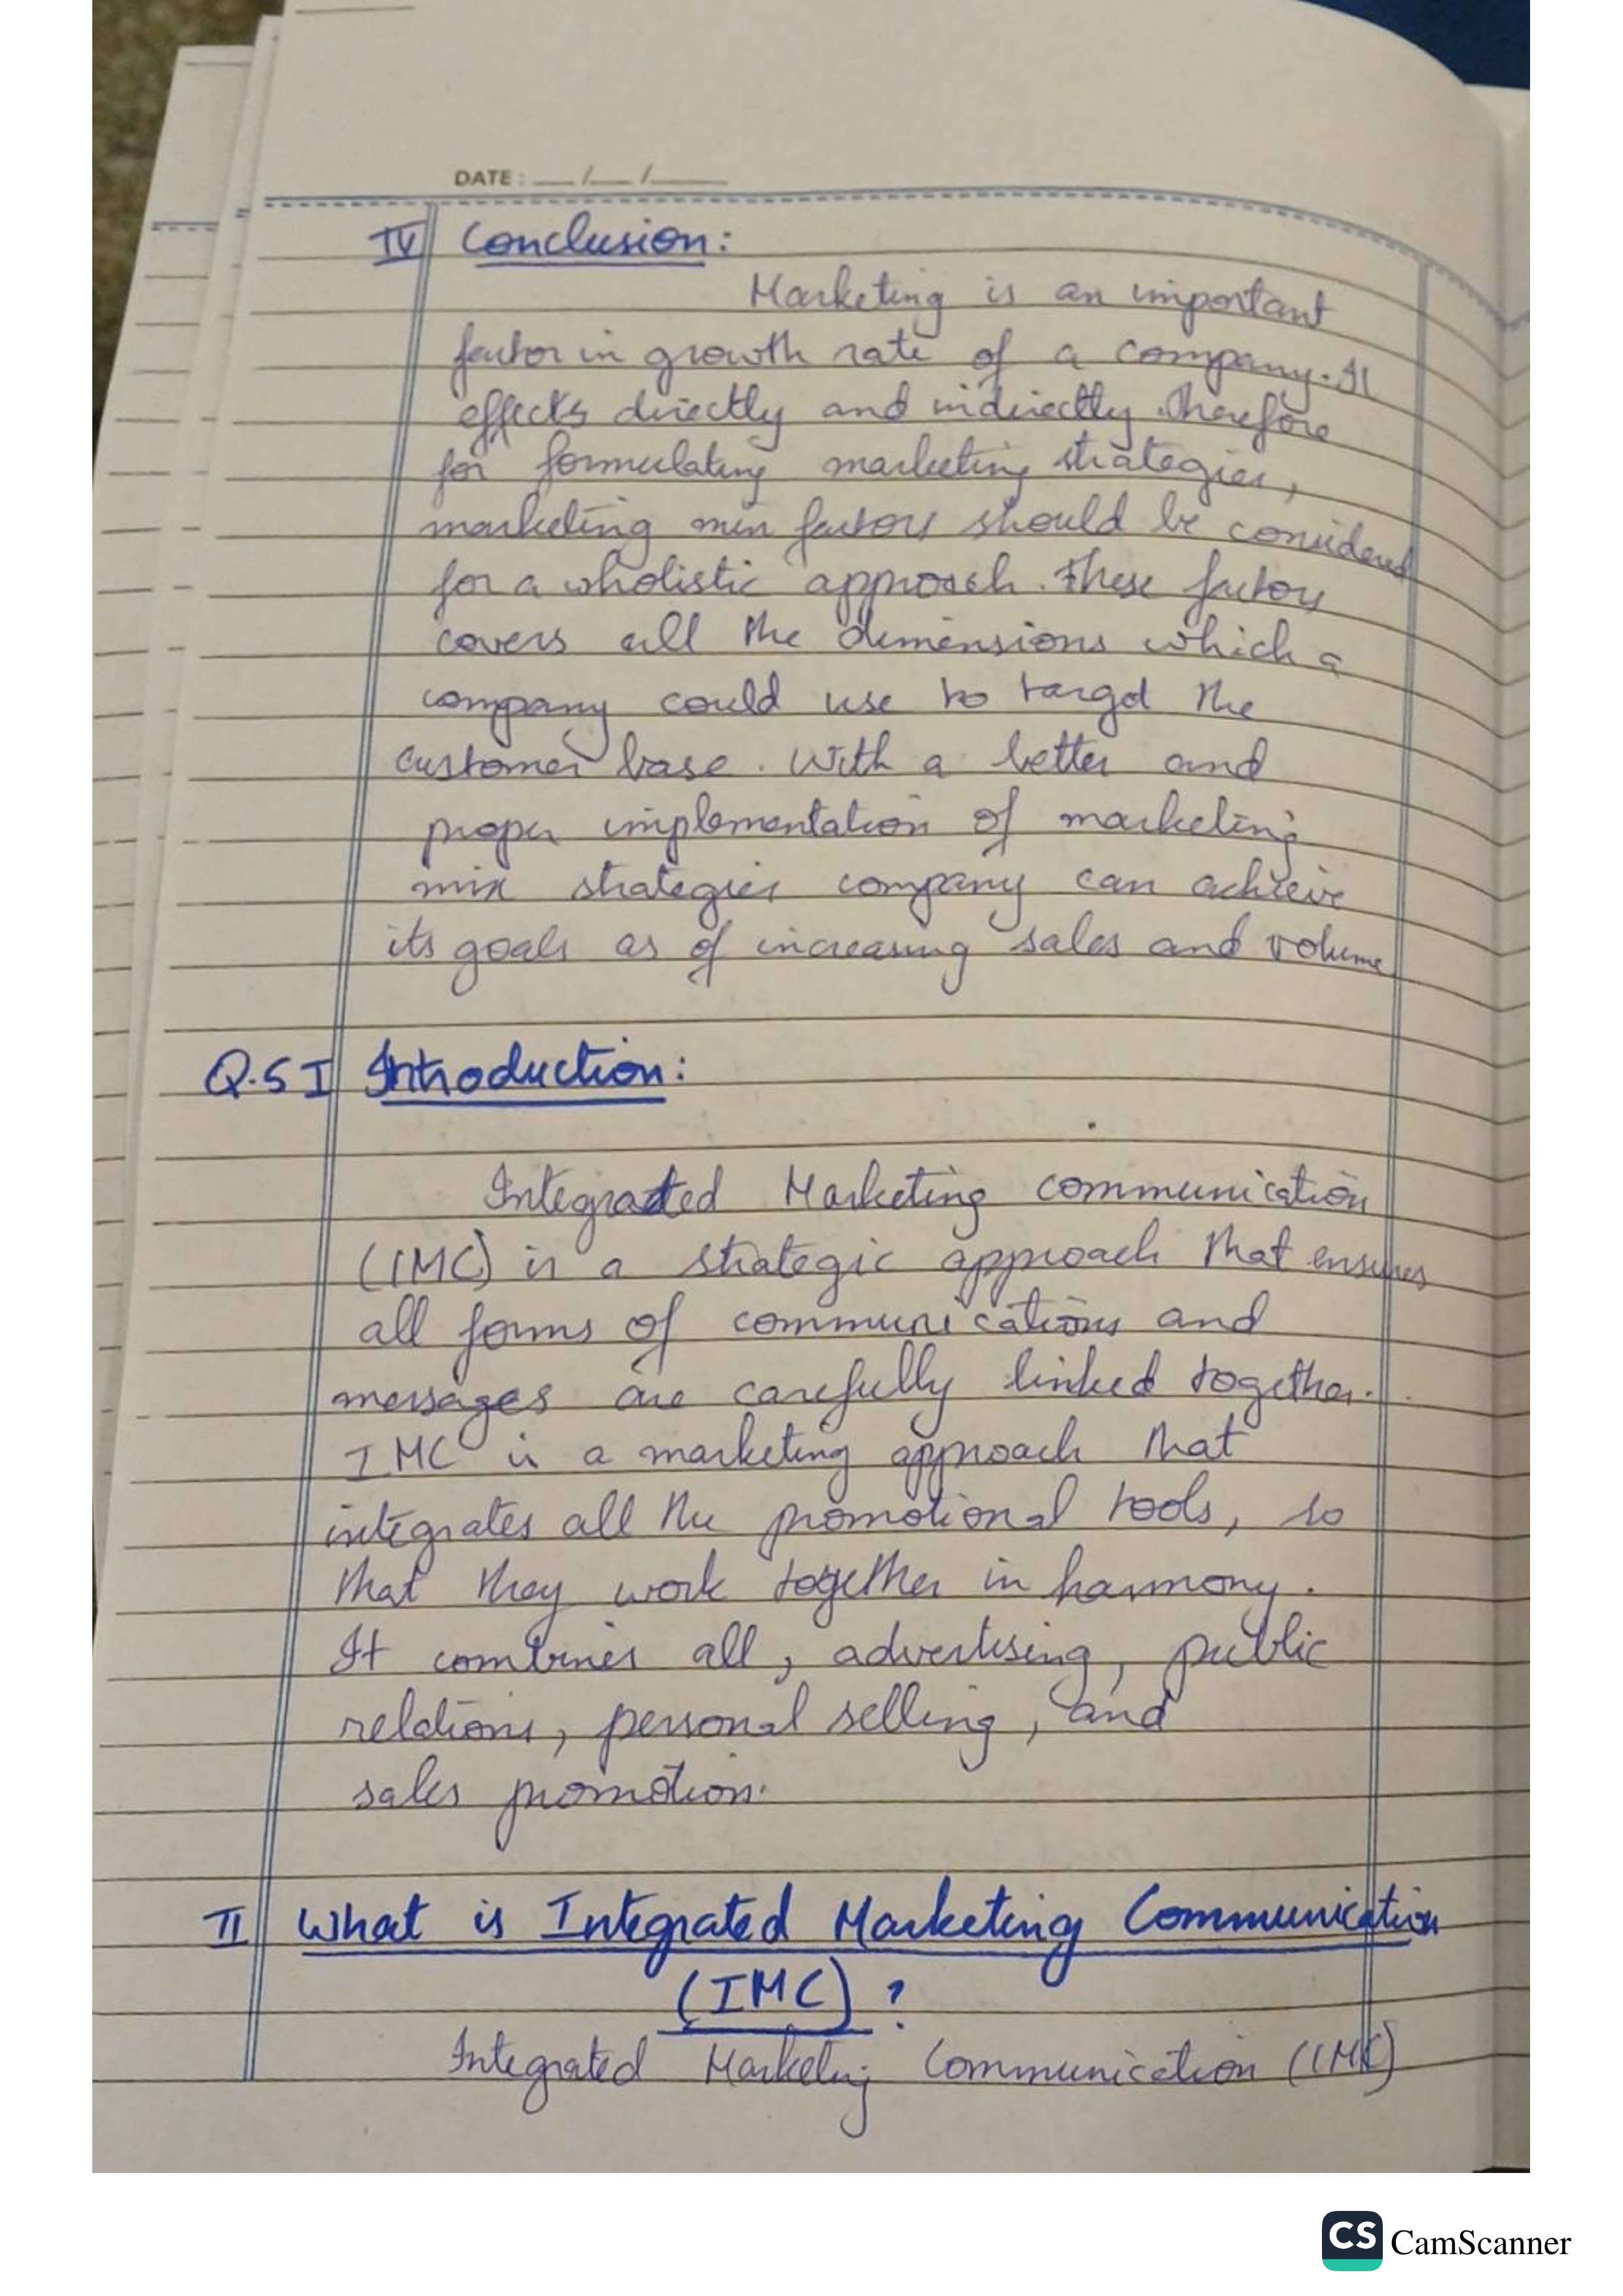 DATE: __/__/____
IV Conclusion:
Marketing is an important
factor in growth rate of a company. It
effects directly and indirectly. Therefore
for formulating marketing strategies,
marketing mix factors should be considered
for a wholistic approach. These factors
covers all the dimensions which a
company could use to target the
customer base. With a better and
proper implementation of marketing
mix strategies company can achieve
its goals as of increasing sales and volume
Q.5 I Introduction:
Integrated Marketing communication
(IMC) is a strategic approach that ensures
all forms of communications and
messages are carefully linked together.
IMC is a marketing approach that
integrates all the promotional tools, so
that they work together in harmony.
It combines all, advertising, public
relations, personal selling, and
sales promotion.
II What is Integrated Marketing Communication
(IMC) ?
Integrated Marketing Communication (IMC)
CS CamScanner